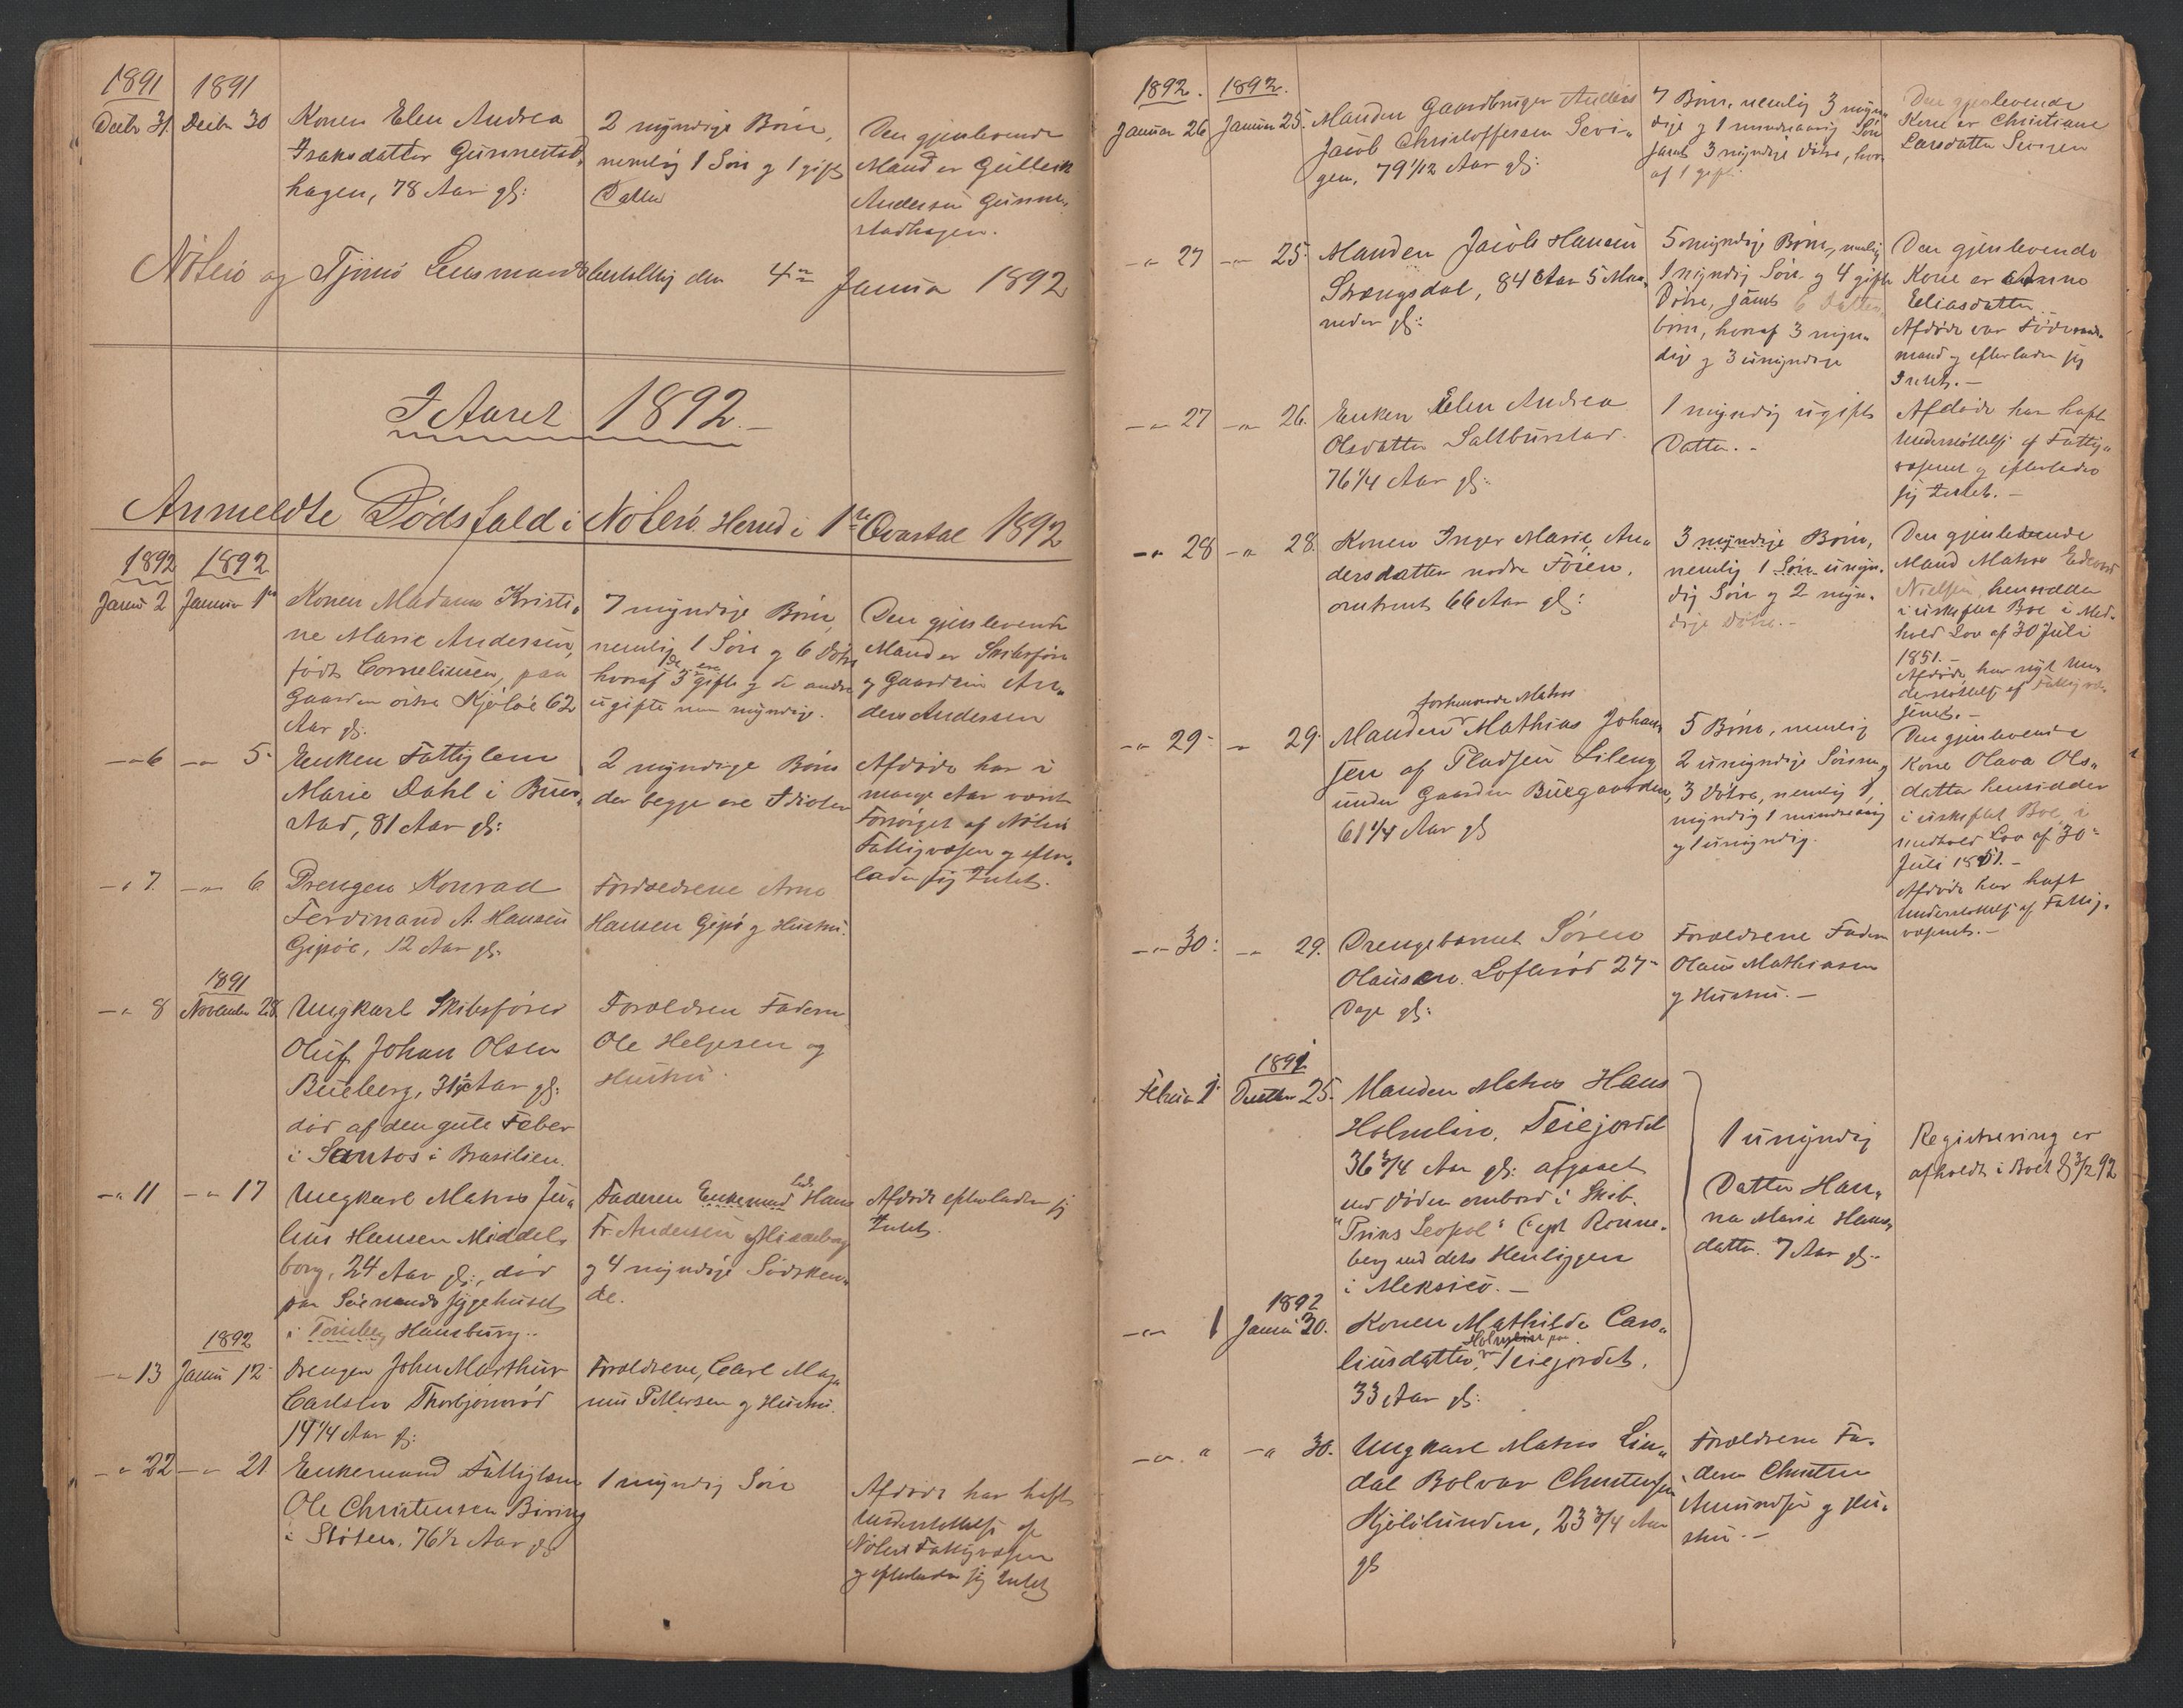 1891 1891
Decbr 31. Decbr 30 Konen Elen Andrea
Isaksdatter Gunnestad-
hagen, 78 Aar gl:
2 myndige Børn,
nemlig 1 Søn og 1 gift
Datter
Den gjenlevende
Mand er Gullerik
Andersen Gunne-
stadhagen.
Nøterø og Tjømø Lensmandsbestilling den 4de Januar 1892
I Aaret 1892.-
Anmeldte Dødsfald i Nøterø Herred i 1ste Qvartal 1892
1892 1892
Januar 2 Januar 1ste Konen Madame Kristi-
ne Marie Andersen,
født Corneliusen, paa
Gaarden østre Kjøløe 62
Aar gl.
7 myndige Børn,
nemlig 1 Søn og 6 Døtre
hvoraf de 3 ere gifte og de andre
ugifte men myndige.
Den gjenlevende
Mand er Skibsfører
og Gaardeier An-
ders Andersen
-"- 6 -"- 5 Enken Fattiglem
Marie Dahl i Buer-
stad, 81 Aar gl:
2 myndige Børn
der begge ere Idioter
Afdøde har i
mange Aar været
Forsørget af Nøterø
Fattigvæsen og efter-
lader sig Intet.
-"- 7. -"- 6 Drengen Konrad
Ferdinand A. Hansen
Gipøe, 12 Aar gl.
Forældrene Arne
Hansen Gipø og Hustru.
1891
-"- 8 November 28. Ungkarl Skibsfører
Oluf Johan Olsen
Bueberg, 31 Aar gl:
død af den gule Feber
i Santos i Brasilien.
Forældren Faderen
Ole Helgesen og
Hustru.
-"- 11 -"- 17 Ungkarl Matros Ju-
lius Hansen Middels
borg, 24 Aar gl:, død
paa Sømands Sygehuset
i Tønsberg Hamburg..
Faderen Enkemand Hans
Fr. Andersen
og 4 myndige Sødsken-
de.
Afdøde efterlader sig
Intet.
1892
-"- 13 Januar 12 Drengen John Marthur
Carlsen Thorbjørnrød
14 1/4 Aar gl:
Forældrene, Carl Mag-
nus Pettersen og Hustru.
-"- 22 -"- 21 Enkemand Fattiglem
Ole Christensen Boring
i Støten, 76 1/2 Aar gl
1 myndig Søn
Afdøde har haft
Understøttelse af
Nøterø Fattigvæsen
og efterlader sig Intet
1892. 1892.
Januar 26 Januar 25. Manden Gaardbruger Anders
Jacob Christoffersen Sevi-
gen, 79 1/12 Aar gl:
7 Børn, nemlig 3 myn-
dige og 1 mindreaarig Søn
samt 3 myndige Døtre, hvor
af 1 gift.
Den gjenlevende
Kone er Christiane
Larsdatter Sevigen
-"- 27 -"- 25. Manden Jacob Hansen
Strengsdal, 84 Aar 5 Maa-
neder gl:
5 myndige Børn, nemlig
1 myndig Søn og 4 gifte
Døtre, samt 6 Datter-
børn, hvoraf 3 myn-
dige og 3 umyndige
Den gjenlevende
Kone er Anne
Eliasdatter
Afdøde var Føderaads-
mand og efterlader sig
Intet.-
-"- 27 -"- 26. Enken Elen Andrea
Olsdatter Saltburstad.
76 1/4 Aar gl:
1 myndig ugift
Datter.-
Afdøde har haft
Understøttelse af Fattig-
væsenet og efterlader
sig Intet.-
-"- 28 -"- 28. Konen Inger Marie An-
dersdatter nedre Føien,
omtrent 66 Aar gl:
3 myndige Børn,
nemlig 1 Søn umyn-
dig Søn og 2 myn-
dige Døtre.-
Den gjenlevende
Mand Matros Edvard
Nielsen, hensidder
i uskiftet Bo i Med-
hold Lov af 30 Juli
1851.-
Afdøde har nydt Un-
derstøttelse af Fattigvæ-
senet.-
-"- 29 -"- 29. forhenværende Matros
Manden Mathias Johan-
sen af Pladsen Lileng
under Gaarden Buegaarden,
61 1/4 Aar gl
5 Børn, nemlig
2 umyndige Sønner og
3 Døtre, nemlig 1
myndig 1 mindreaarig
og 1 umyndig.
Den gjenlevende
Kone Olava Ols-
datter hensidder
i uskiftet Bo, i
Medhold Lov af 30
Juli 1851.-
Afdøde har haft
Understøttelse af Fattig-
væsenet.-
-"- 30: -"- 29. Drengebarnet Søren
Olausen Loftsrød 27
Dage gl:
Forældrene Faderen
Olaus Mathiasen
og Hustru.-
1891
Februar 1 December 25. Manden Matros Hans
Holmlin, Teiejordet
36 3/4 Aar gl: afgaaet
ved Døden ombord i Skib
"Prins Leopol" Capt Rønne-
berg ved dets Henliggen
i Meksico.-
1 umyndig
Datter Han-
na Marie Hans-
datter. 7 Aar gl.
Registrering er
afholdt i Boet d 3/2 92
1892
-"- 1 Januar 30. Konen Mathilde Caro-
liusdatter, Holmlin paa Teiejordet.
33 Aar gl:
-"- " -"- 30. Ungkarl Matros Lin-
dal Bolvar Christensen
Kjølølunden, 23 3/4 Aar
gl
Forældrene Fa-
deren Christen
Amundsen og Hu-
stru.-